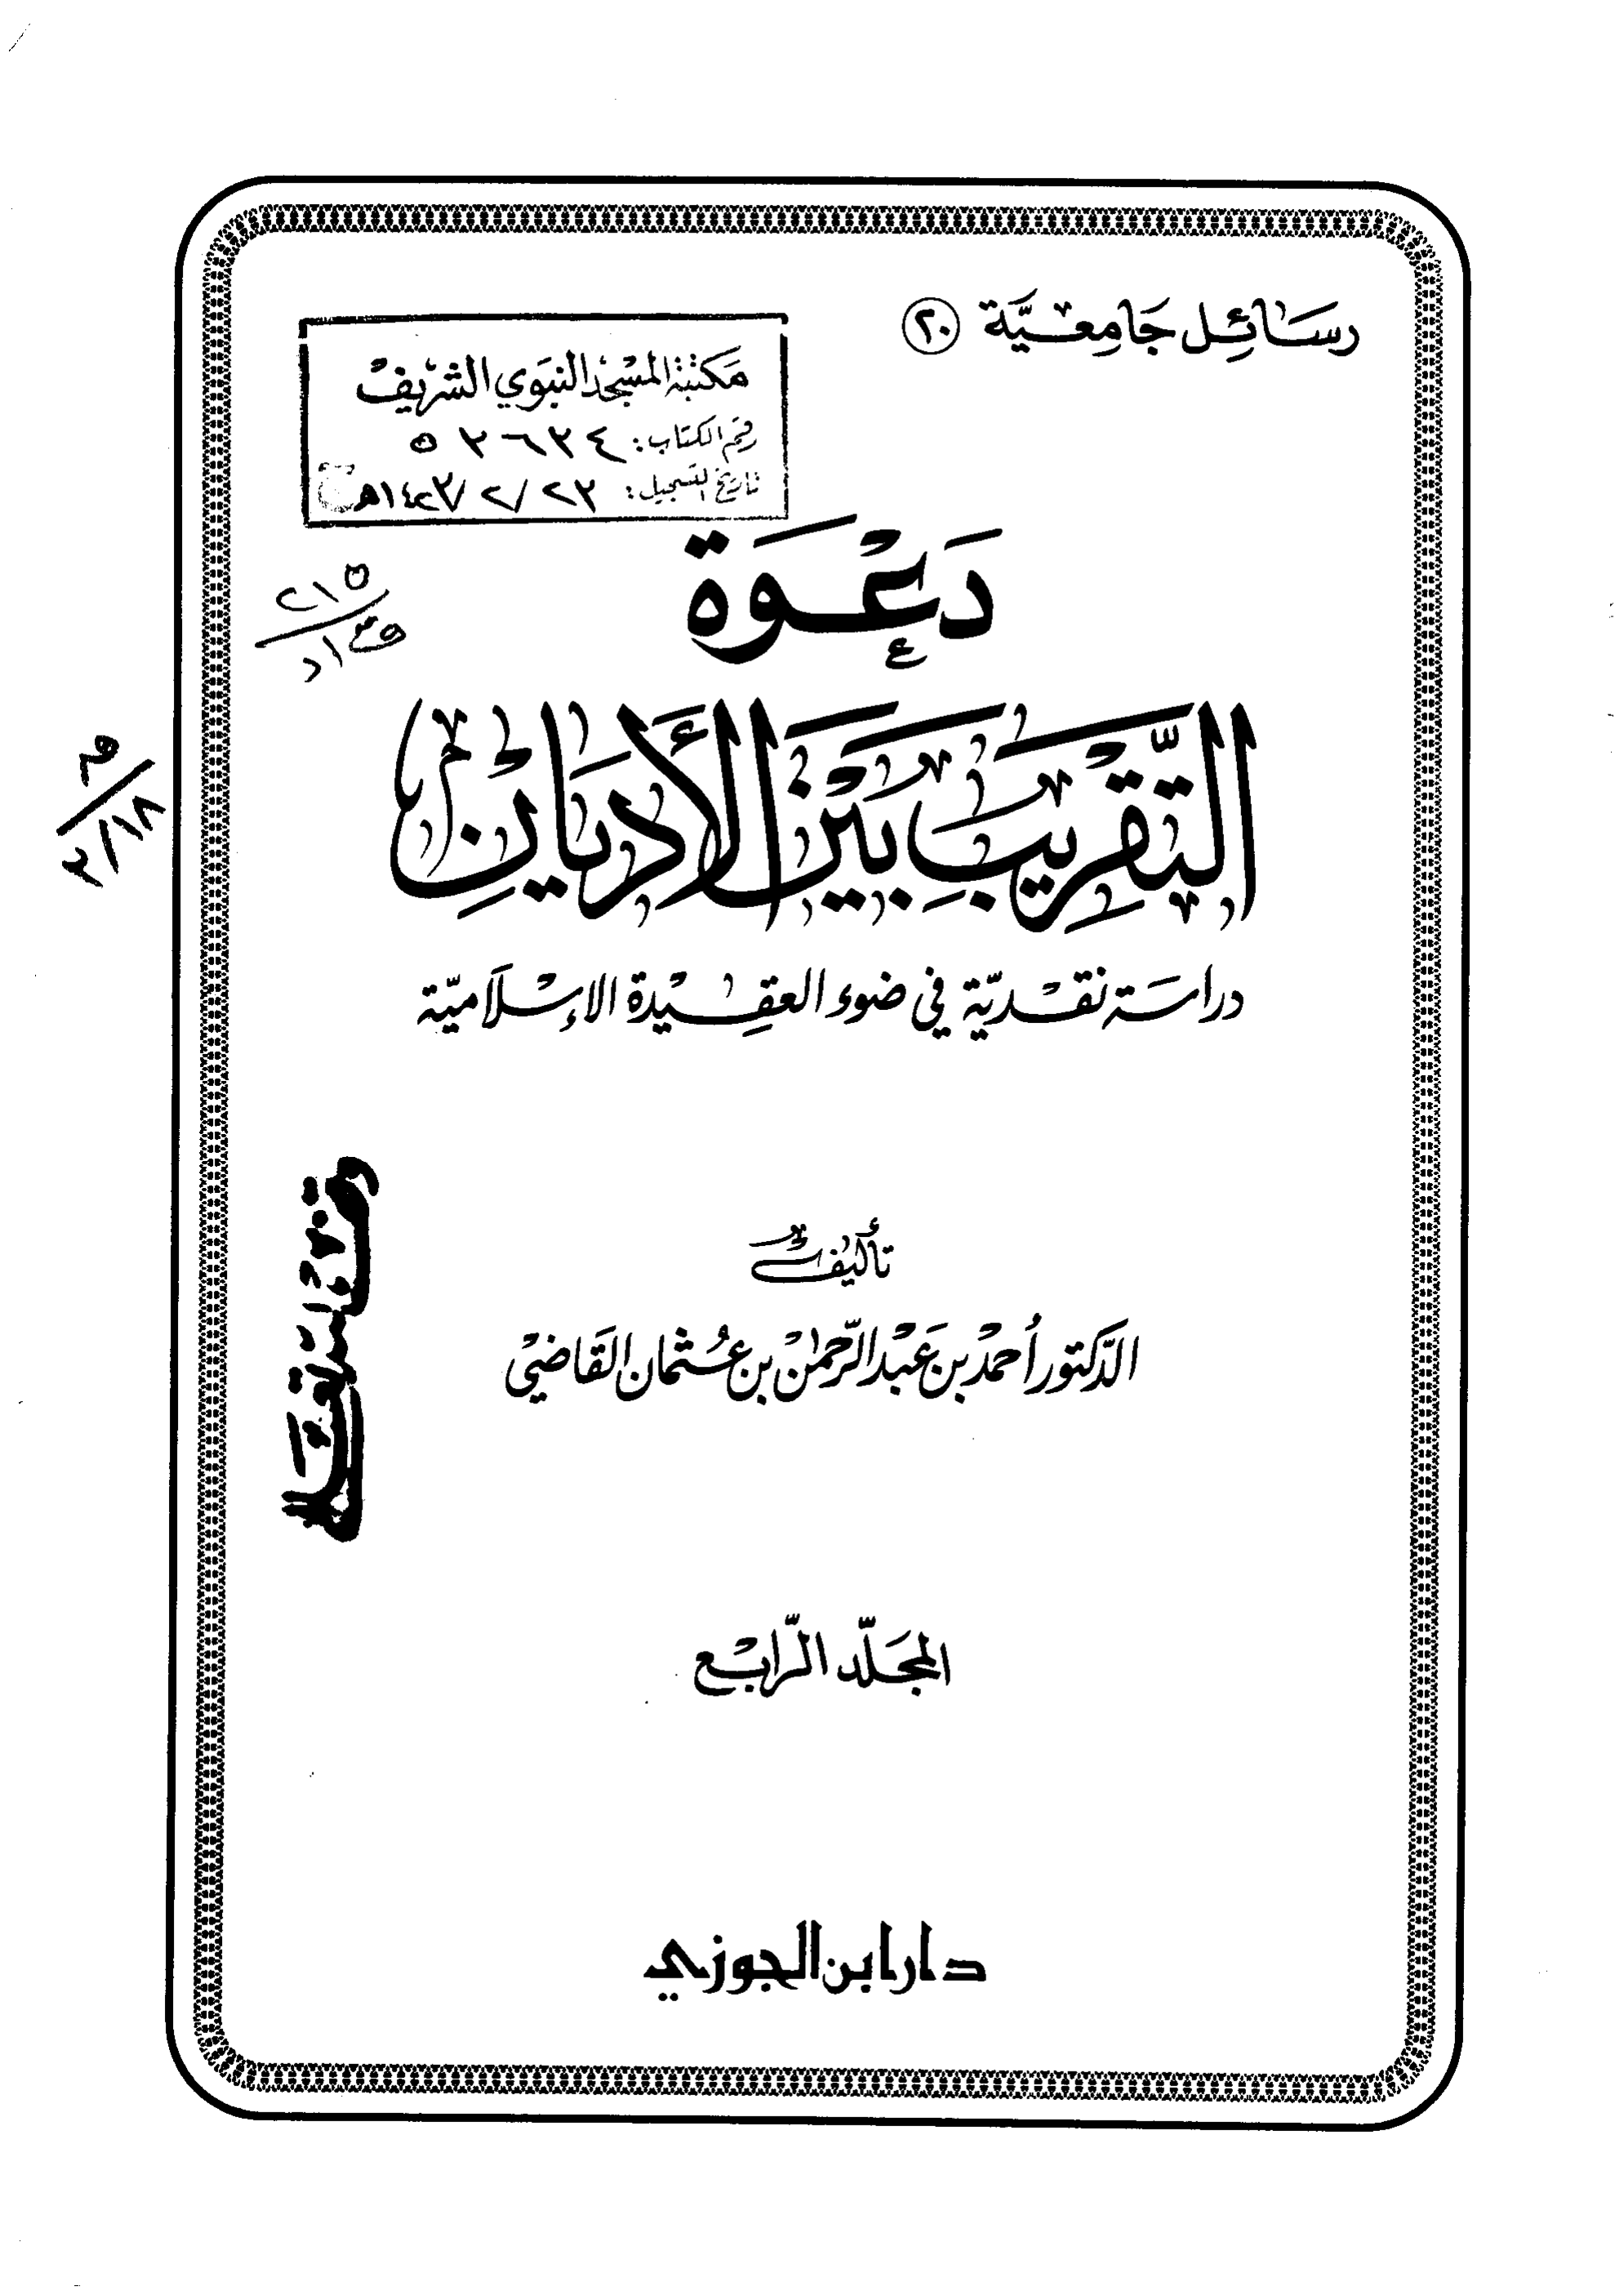 رسَائِل جَامِعيَّة ٢٠
مكتبة المسجد النبوي الشريف
رقم الكتاب: ٥٣٦٣٤
تاريخ التسجيل: ٢٣/٢/١٤٢٣هـ
٢١٥
دَعْوَة
التَّقْرِيبِ بَيْنَ الأَدْيَانِ
دراسَة نقْديَّة في ضوء العقِيْدة الإسْلاَميَّة
تأليف
الدَّكتور أحمَدْ بن عَبْد الرَّحمٰن بن عُثمان القَاضيْ
المجَلّد الرَّابْع
دار ابن الجوزي